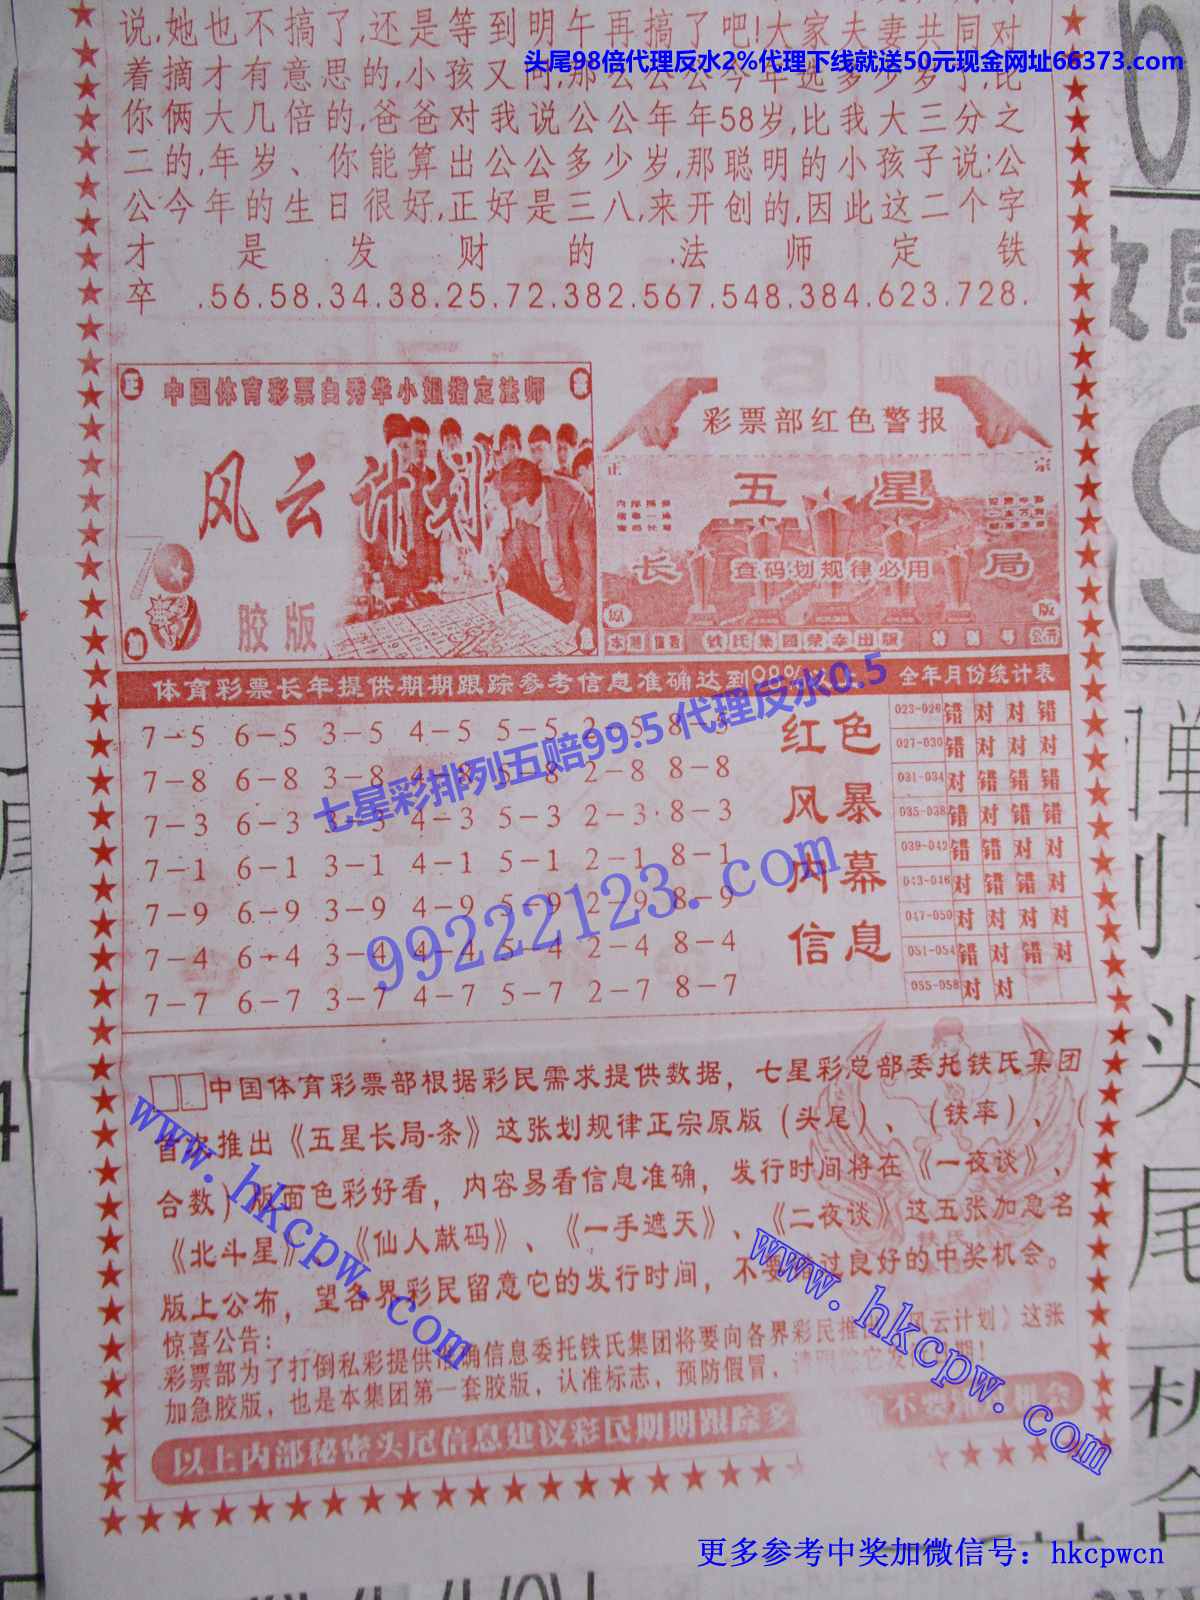 说,她也不搞了,还是等到明午再搞了吧!大家夫妻共同对
头尾98倍代理反水2%代理下线就送50元现金网址66373.com
着摘才有意思的,小孩又问,那公公公今年选多少岁了,比
你俩大几倍的,爸爸对我说公公年年58岁,比我大三分之
二的,年岁、你能算出公公多少岁,那聪明的小孩子说:公
公今年的生日很好,正好是三八,来开创的,因此这二个字
才是发财的法师定铁
卒.56.58.34.38.25.72.382.567.548.384.623.728.
正
中国体育彩票白秀华小姐指定法师
风云计划
胶版
彩票部红色警报
正 宗
五星
长局
查码划规律必用
原 版
铁氏集团荣幸出版
体育彩票长年提供期期跟踪参考信息准确达到98% 全年月份统计表
七星彩排列五赔99.5代理反水0.5
99222123.com
7-5 6-5 3-5 4-5 5-5 2-5 8-5
7-8 6-8 3-8 4-8 5-8 2-8 8-8
7-3 6-3 3-3 4-3 5-3 2-3 8-3
7-1 6-1 3-1 4-1 5-1 2-1 8-1
7-9 6-9 3-9 4-9 5-9 2-9 8-9
7-4 6-4 3-4 4-4 5-4 2-4 8-4
7-7 6-7 3-7 4-7 5-7 2-7 8-7
红色
风暴
内幕
信息
023-026 错 对 对 错
027-030 错 对 对 对
031-034 对 错 错 错
035-038 错 对 错 错
039-042 错 错 对 对
043-046 对 错 错 对
047-050 对 对 对 对
051-054 错 对 错 对
055-058 对 对
□□中国体育彩票部根据彩民需求提供数据，七星彩总部委托铁氏集团
首次推出《五星长局-条》这张划规律正宗原版（头尾）、（铁率）、（
合数）版面色彩好看，内容易看信息准确，发行时间将在《一夜谈》、
《北斗星》、《仙人献码》、《一手遮天》、《二夜谈》这五张加急名
版上公布，望各界彩民留意它的发行时间，不要错过良好的中奖机会。
惊喜公告：
彩票部为了打倒私彩提供准确信息委托铁氏集团将要向各界彩民推出《风云计划》这张
加急胶版，也是本集团第一套胶版，认准标志，预防假冒，请跟踪它发行日期！
以上内部秘密头尾信息建议彩民期期跟踪多 不要 机会
www.hkcpw.com
www.hkcpw.com
更多参考中奖加微信号：hkcpwcn